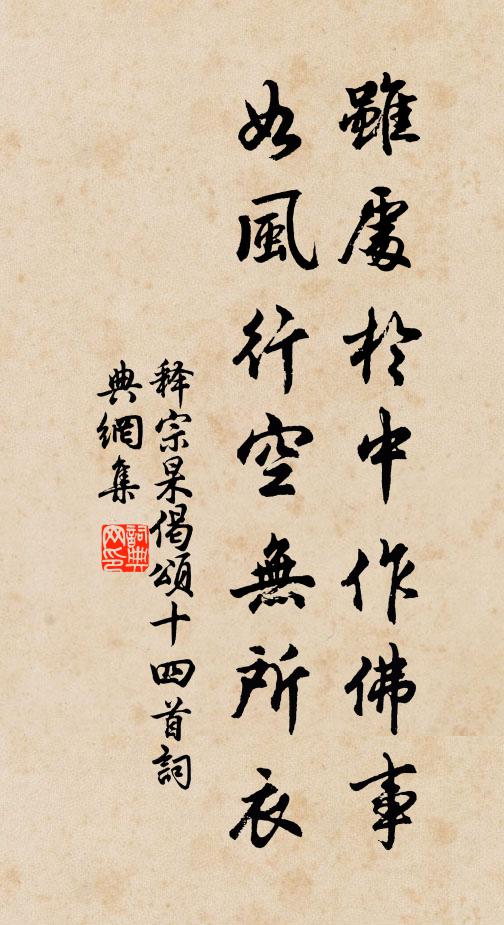 雖處於中作佛事
如風行空無所衣
释宗杲偈頌十四首詞
典網集
詞典网印